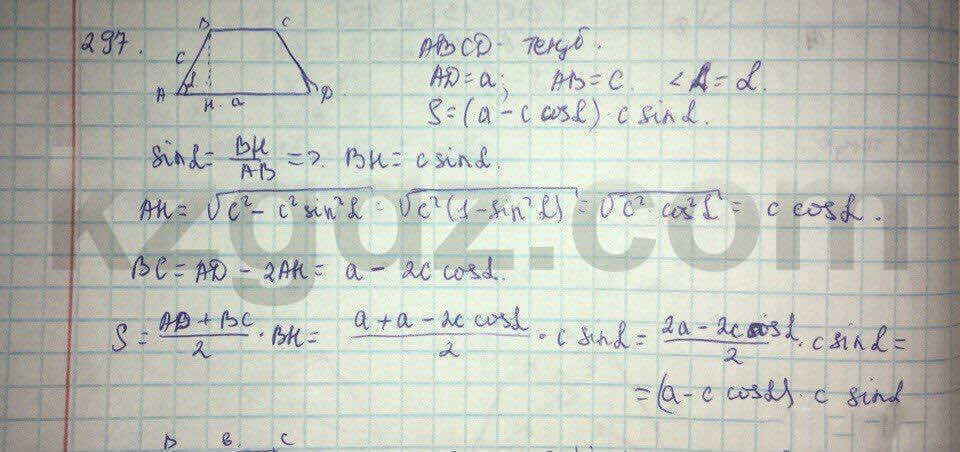 297.
B C
c
A α H a D
ABCD - теңб.
AD = a; AB = c. ∠A = α.
S = (a - c cosα) · c sinα.
sinα = BH/AB => BH = c sinα.
AH = √(c² - c² sin²α) = √(c²(1 - sin²α)) = √(c² · cos²α) = c cosα.
BC = AD - 2AH = a - 2c cosα.
S = (AD + BC)/2 · BH = (a + a - 2c cosα)/2 · c sinα = (2a - 2c cosα)/2 · c sinα =
= (a - c cosα) · c sinα
B в. C
kzgdz.com